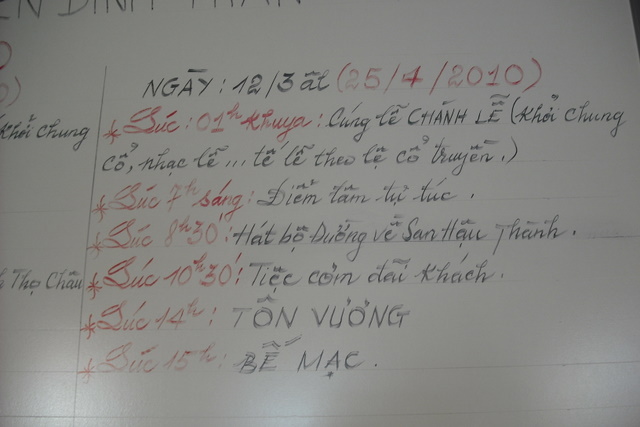 NGÀY: 12/3 ÂL (25/4/2010)
* Lúc: 01h khuya: Cúng tế CHÁNH LỄ (Khởi chung
khởi chung
cổ, nhạc lễ... tế lễ theo lệ cổ truyền.)
* Lúc 7h sáng: Điểm tâm tự túc.
* Lúc 8h30': Hát bộ Đường về San Hậu Thành.
Thọ Châu
* Lúc 10h30': Tiệc cơm đãi khách.
* Lúc 14h: TÔN VƯƠNG
* Lúc 15h: BẾ MẠC.